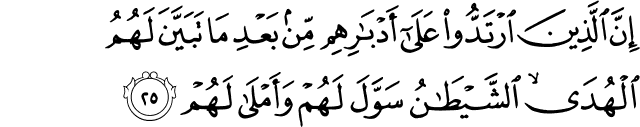 إِنَّ ٱلَّذِينَ ٱرْتَدُّوا۟ عَلَىٰٓ أَدْبَـٰرِهِم مِّنۢ بَعْدِ مَا تَبَيَّنَ لَهُمُ
ٱلْهُدَى ۙ ٱلشَّيْطَـٰنُ سَوَّلَ لَهُمْ وَأَمْلَىٰ لَهُمْ ٢٥